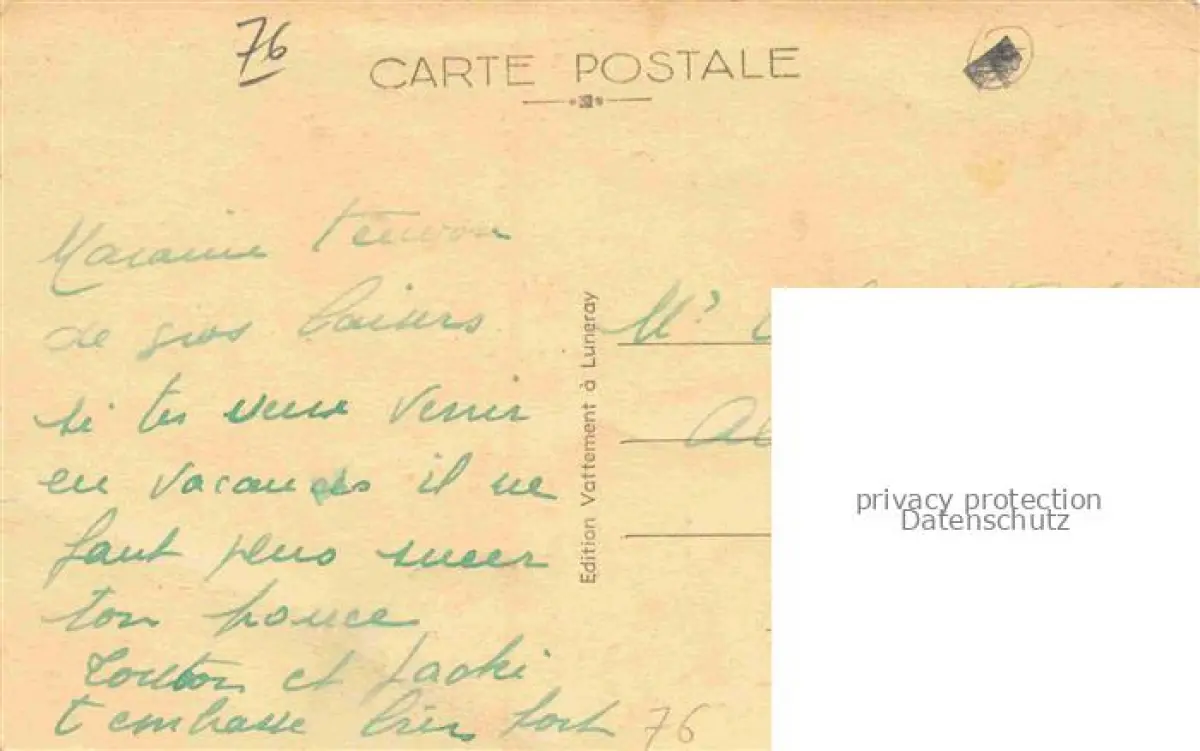 76
CARTE POSTALE
de gros baisers
si tu veux venir
en vacances il ne
faut plus sucer
ton pouce
Tonton et Jacki
t embrasse bien fort
76
Edition Vattement à Luneray
Mr
privacy protection
Datenschutz